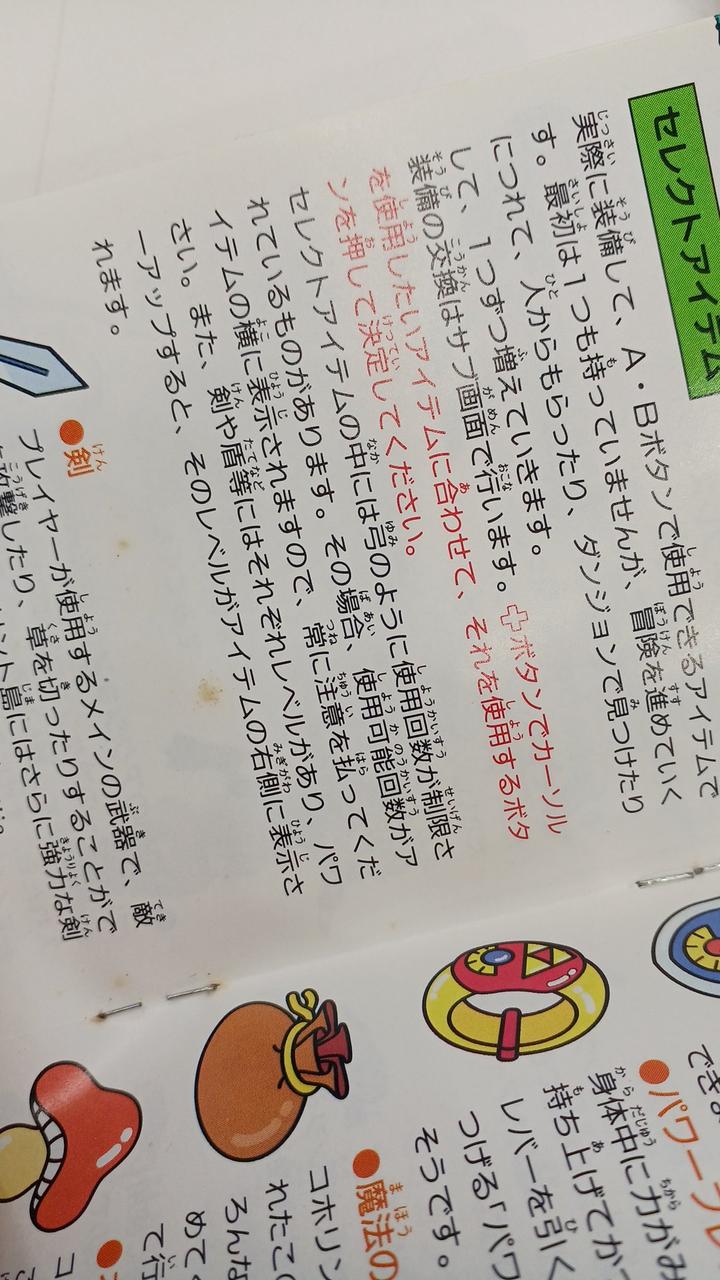 セレクトアイテム
実際に装備して、A・Bボタンで使用できるアイテムで
す。最初は1つも持っていませんが、冒険を進めていく
につれて、人からもらったり、ダンジョンで見つけたり
して、1つずつ増えていきます。
装備の交換はサブ画面で行います。✚ボタンでカーソル
を使用したいアイテムに合わせて、それを使用するボタ
ンを押して決定してください。
セレクトアイテムの中には弓のように使用回数が制限さ
れているものがあります。その場合、使用可能回数がア
イテムの横に表示されますので、常に注意を払ってくだ
さい。また、剣や盾等にはそれぞれレベルがあり、パワ
ーアップすると、そのレベルがアイテムの右側に表示さ
れます。
●剣
プレイヤーが使用するメインの武器で、敵
に攻撃したり、草を切ったりすることがで
島にはさらに強力な剣
でき
●パワーブレ
身体中に力がみ
持ち上げてか
レバーを引く
つげる「パワ
そうです。
●魔法の
コホリン
れたこの
ろんな
めて
て行
コ